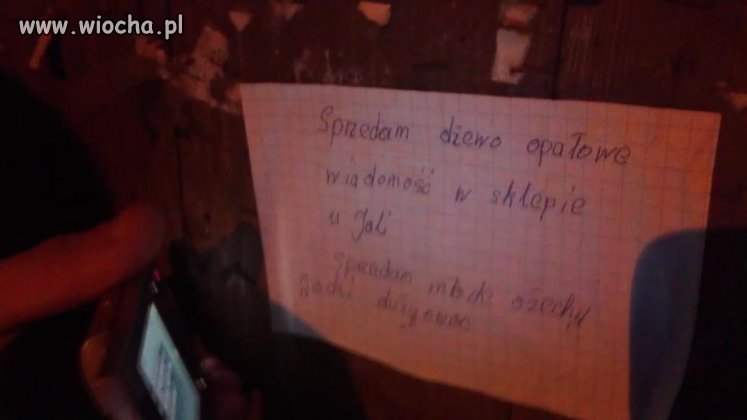 www.wiocha.pl
Sprzedam dżewo opałowe
wiadomość w sklepie
u Joli
sprzedam młode ożechy
duży owoc